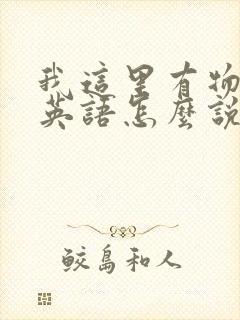 我這里有物
英語怎麼說
鲛島和人